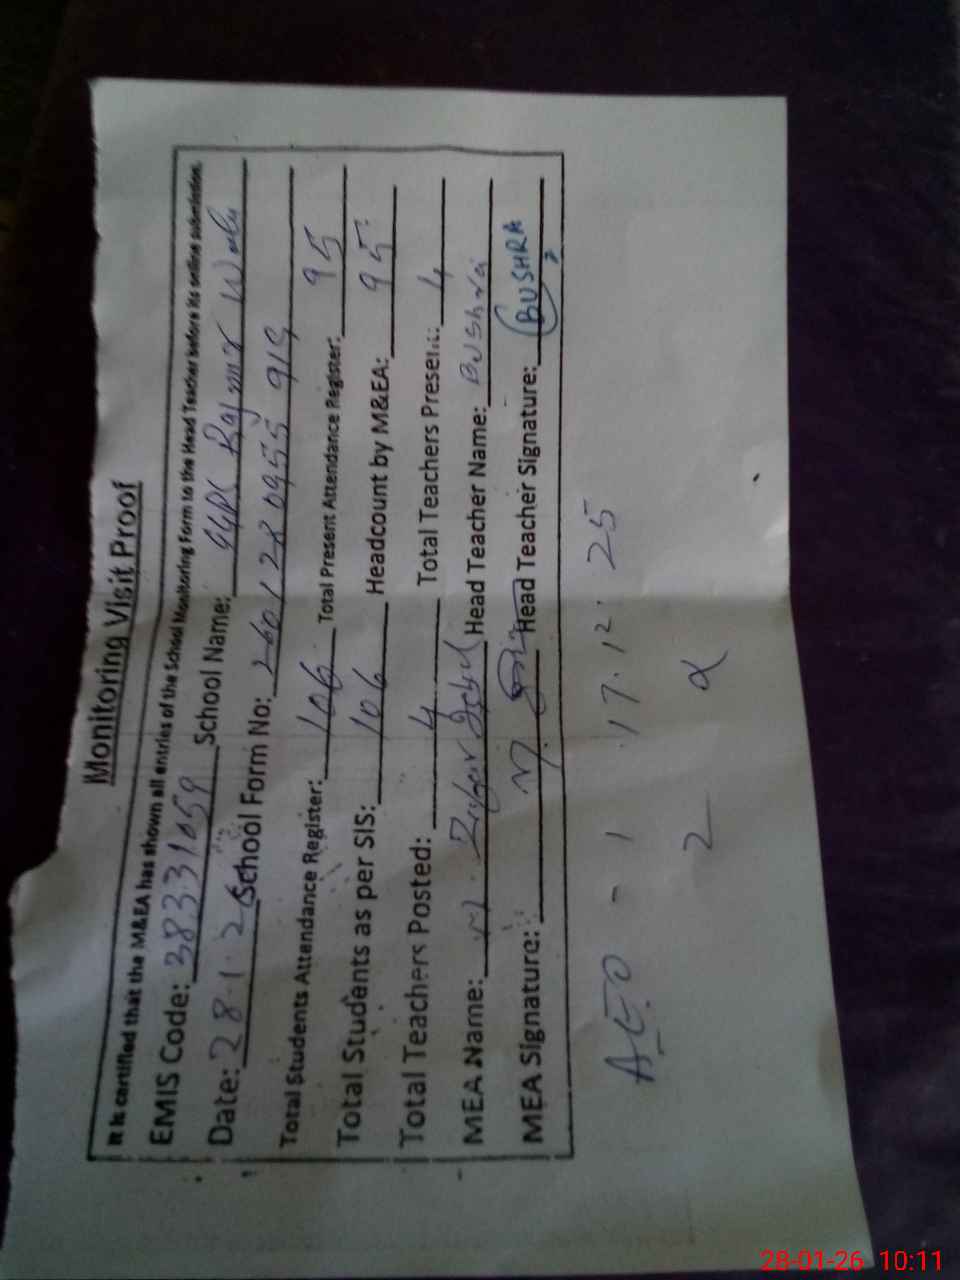 Monitoring Visit Proof
It is certified that the M&EA has shown all entries of the School Monitoring Form to the Head Teacher before its online submission.
EMIS Code: 38331059 School Name: GGPS
Date: 28.1.26 School Form No: 260128095591
Total Students Attendance Register: 106 Total Present Attendance Register: 95
Total Students as per SIS: 106 Headcount by M&EA: 95
Total Teachers Posted: 4 Total Teachers Present: 4
MEA Name: M. Head Teacher Name: Bushra
MEA Signature: Head Teacher Signature: BUSHRA
AEO - 1 17.12.25
2
28-01-26 10:11